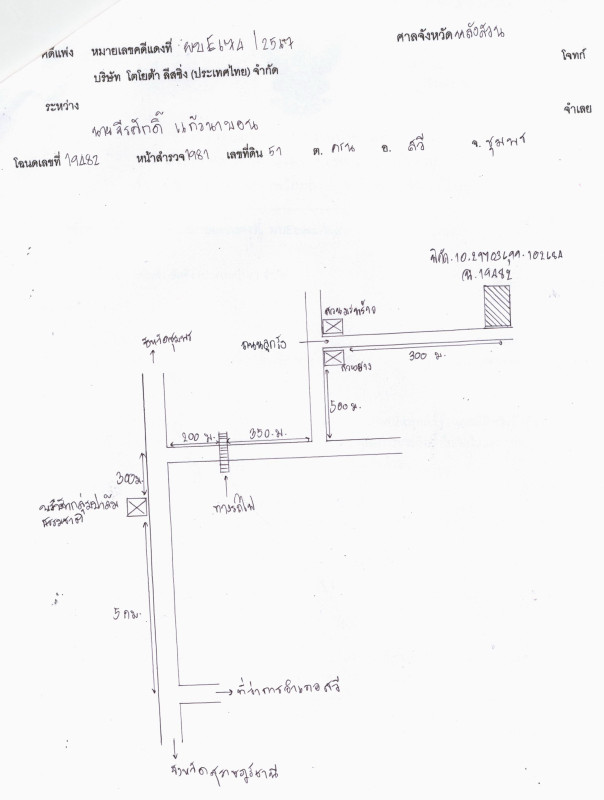 คดีแพ่ง หมายเลขคดีแดงที่ /2567 ศาลจังหวัดหลังสวน
บริษัท โตโยต้า ลีสซิ่ง (ประเทศไทย) จำกัด โจทก์
ระหว่าง
นายจีรศักดิ์ แก้วนาบอน จำเลย
โฉนดเลขที่ 19482 หน้าสำรวจ 1981 เลขที่ดิน 51 ต. ครน อ. สวี จ. ชุมพร
พิกัด.
ฉ.19482
สวนมะพร้าว
จังหวัดชุมพร
ถนนลูกรัง
300 ม.
สวนยาง
500 ม.
200 ม. 350 ม.
300 ม.
ทางรถไฟ
ธรรมชาติ
5 กม.
ที่ว่าการอำเภอสวี
จังหวัดสุราษฎร์ธานี